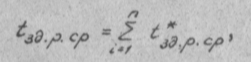 tзд.р.ср = Σ(i=1, n) t*зд.р.ср,